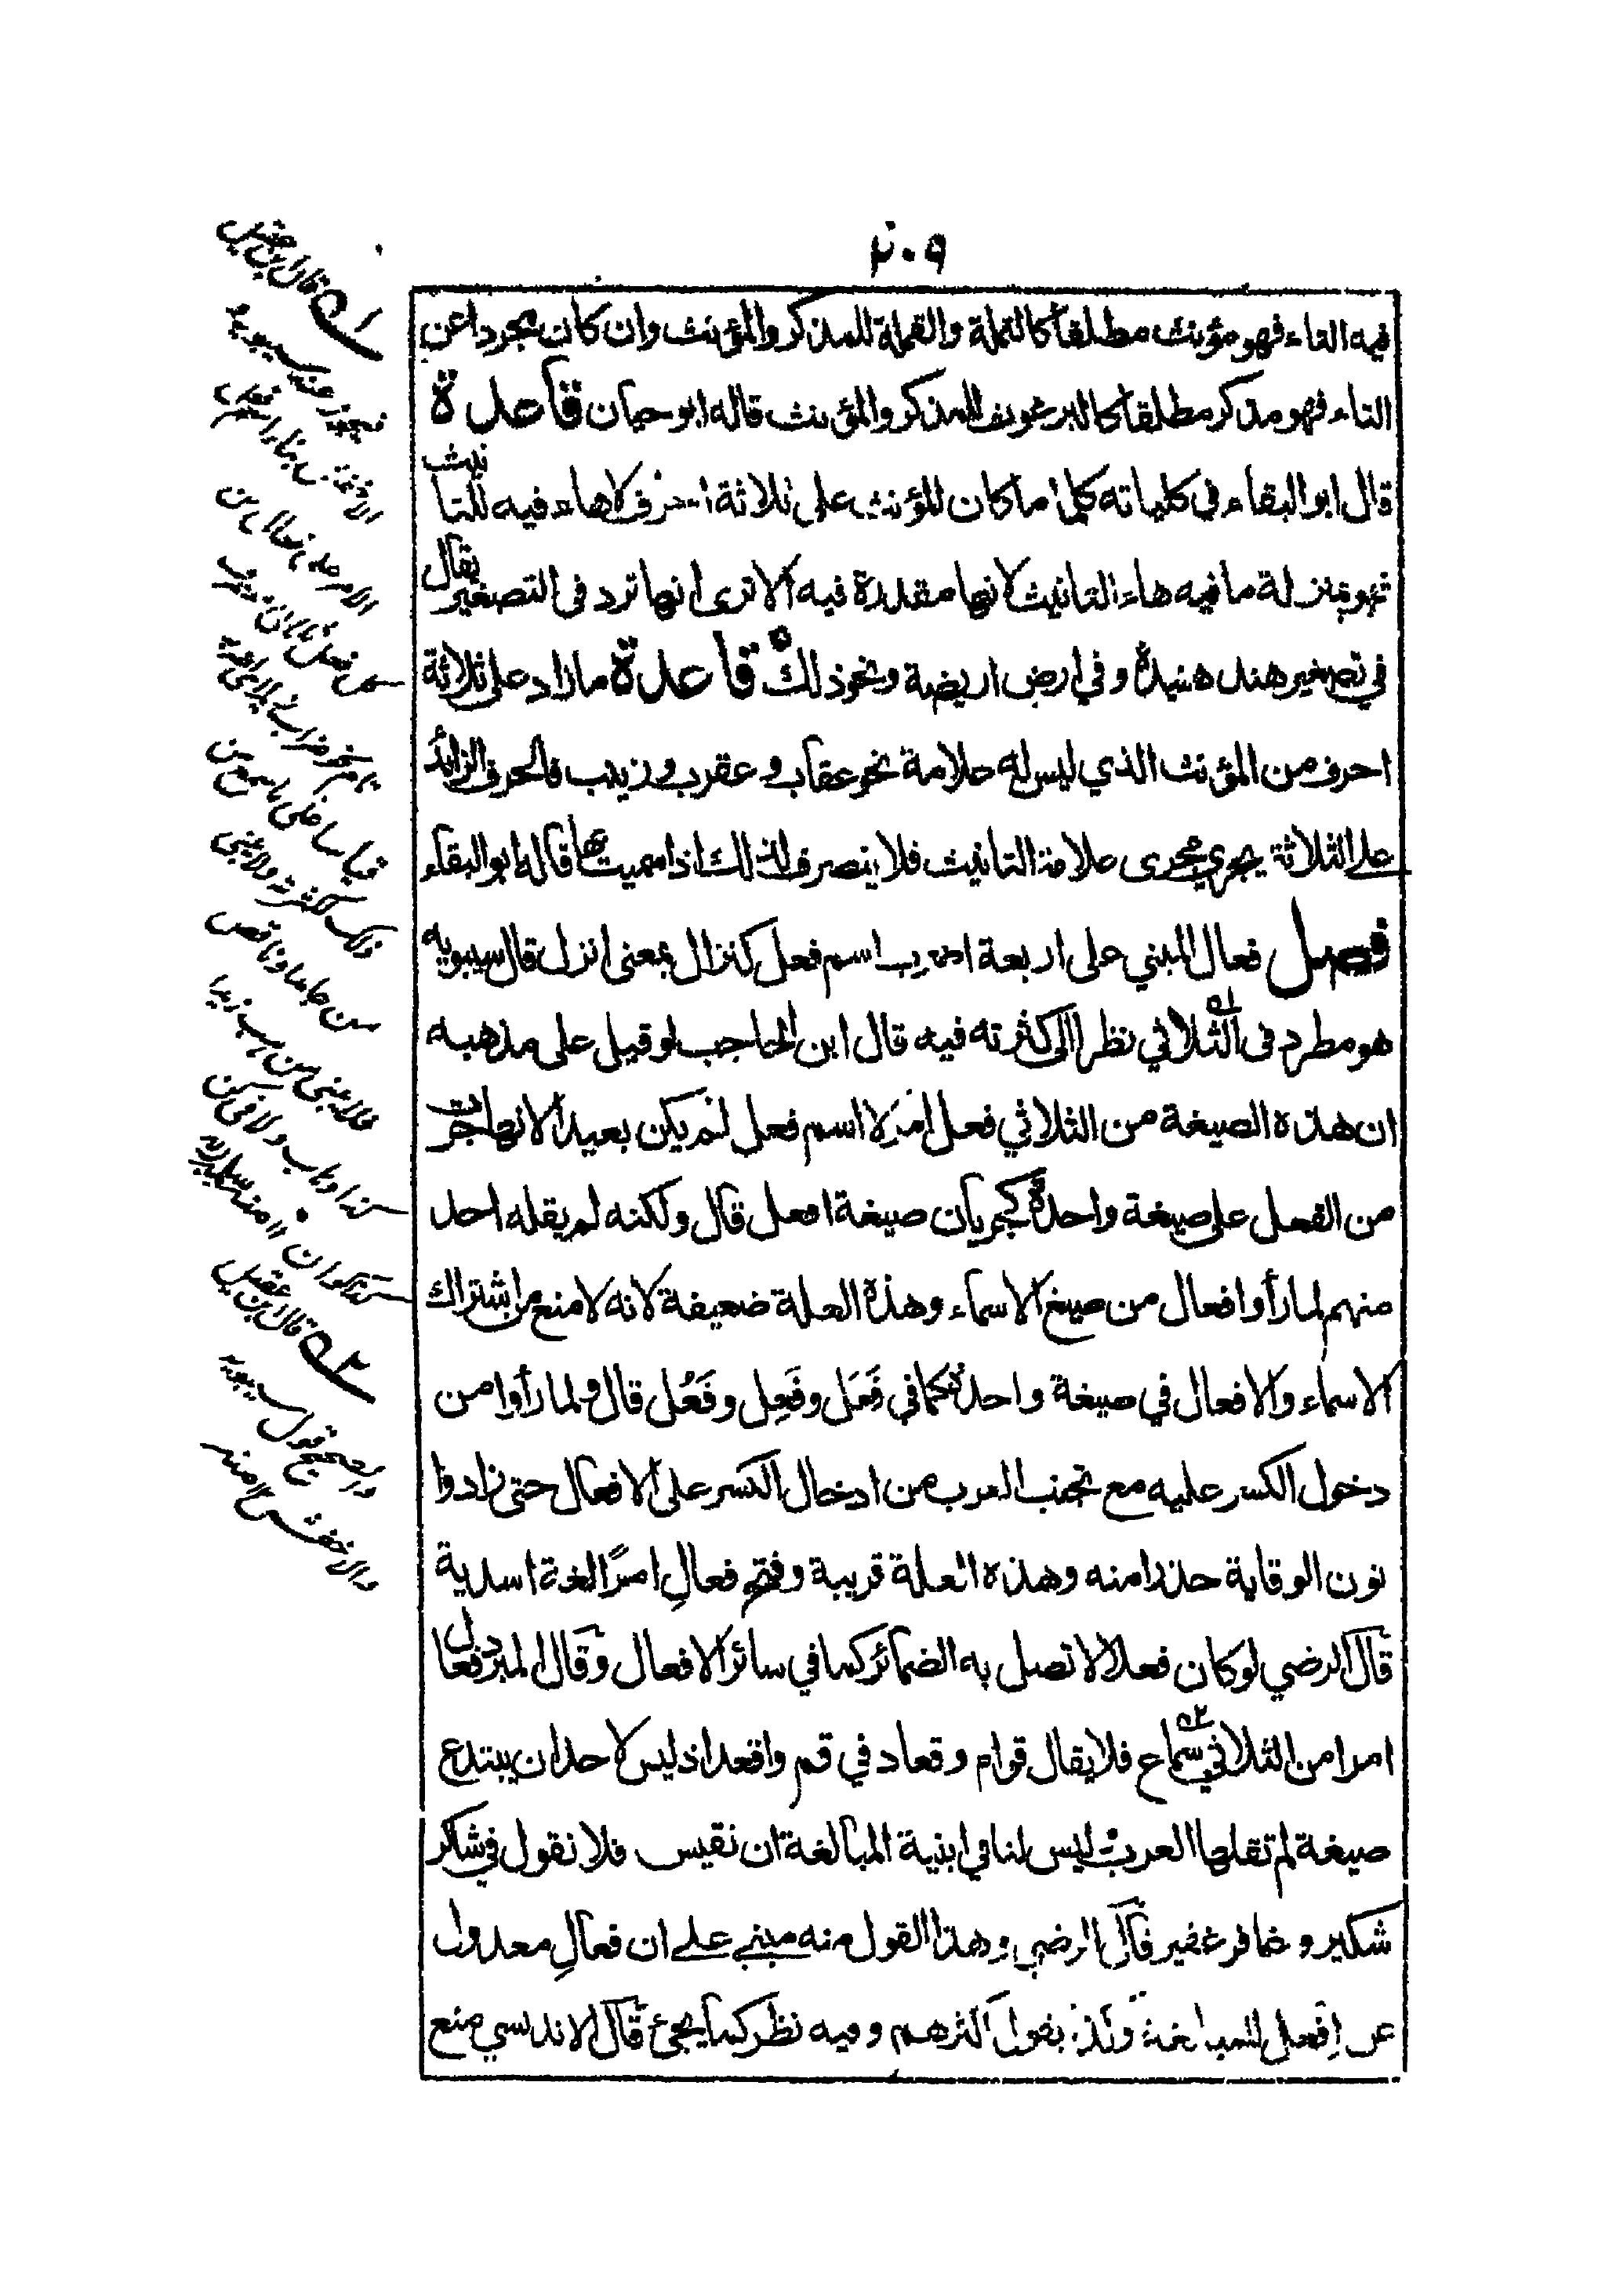 ٢٠٩
فيه التاء فهو مؤنث مطلقا كالنملة والقملة للمذكر والمؤنث وان كان مجردا عن
التاء فهو مذكر مطلقا كالبرغوث للمذكر والمؤنث قاله ابو حيان قاعدة
قال ابو البقاء في كلياته كلما ما كان للمؤنث على ثلاثة احرف لا هاء فيه للتانيث
فهو بمنزلة ما فيه هاء التانيث لانها مقدرة فيه الا ترى انها ترد في التصغير يقال
في تصغير هند هنيدة وفي ارض اريضة ونحو ذلك قاعدة ما زاد على ثلاثة
احرف من المؤنث الذي ليس له علامة نحو عقاب وعقرب وزينب فالحرف الزائد
على الثلاثة يجري مجرى علامة التانيث فلا ينصرف لذلك اذا سميت بها قاله ابو البقاء
فصل فعال المبني على اربعة اضرب اسم فعل كنزال بمعنى انزل قال سيبويه
هو مطرد في الثلاثي نظرا الى كثرته فيه قال ابن الحاجب لو قيل على مذهبه
ان هذه الصيغة من الثلاثي فعل امر لا اسم فعل لم يكن بعيدا لانها جرت
من الفعل على صيغة واحدة كجريان صيغة افعل قال ولكنه لم يقله احد
منهم لما رأوا فعال من صيغ الاسماء وهذه العلة ضعيفة لانه لا منع من اشتراك
الاسماء والافعال في صيغة واحدة كما في فَعَل وفَعِل وفَعُل قال ولما رأوا من
دخول الكسر عليه مع تجنب العرب من ادخال الكسر على الافعال حتى زادوا
نون الوقاية حذرا منه وهذه العلة قريبة وفتح فعالِ امرًا لغة اسدية
قال الرضي لو كان فعلا لاتصل به الضمائر كما في سائر الافعال وقال المبرد فعال
امرا من الثلاثي سماع فلا يقال قوام وقعاد في قم واقعد اذ ليس لاحد ان يبتدع
صيغة لم تقلها العرب ليس لنا في ابنية المبالغة ان نقيس فلا نقول في شاكر
شكير وغافر غفير قال الرضي وهذا القول منه مبني على ان فعالِ معدول
عن اِفعل للمبالغة وكذا يقول اكثرهم وفيه نظر كما يجئ قال الاندلسي منع
١ قال ابن عقيل
فيجوز عند سيبويه
٢ قال ابن عقيل
والصحيح قول سيبويه
والاخفش ١٢ منه